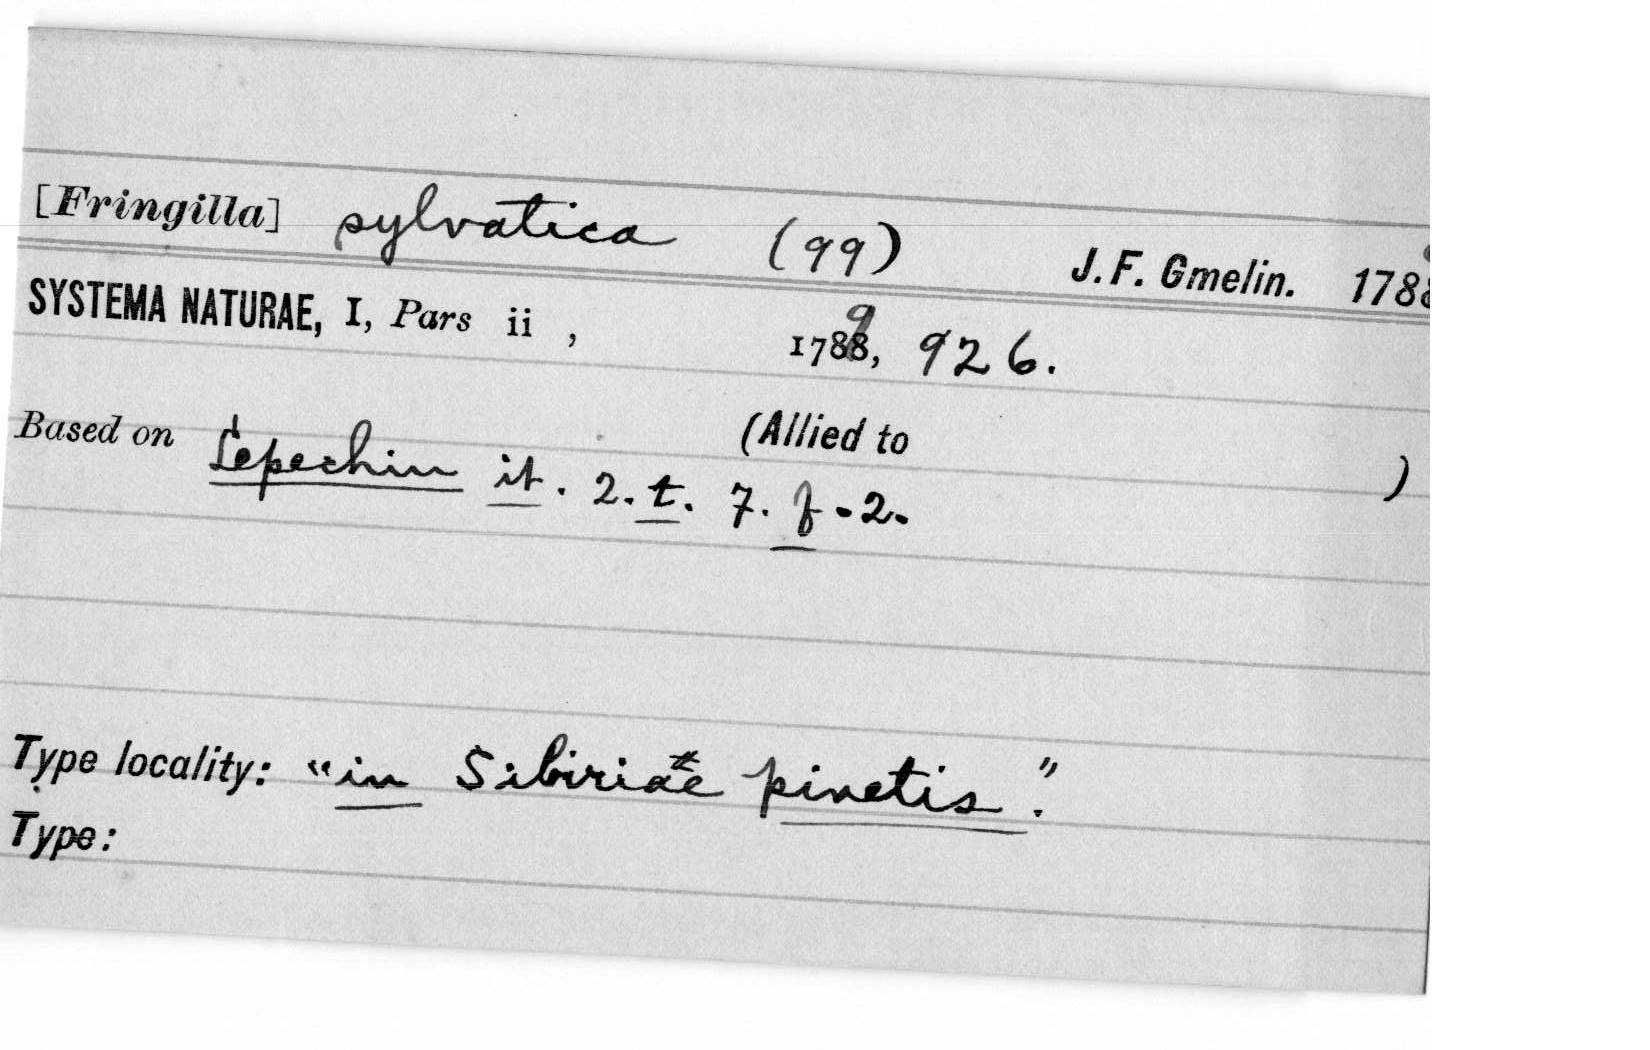 [Fringilla] sylvatica (99) J.F. Gmelin. 1788
SYSTEMA NATURAE, I, Pars ii , 1789, 926.
Based on Lepechin it. 2. t. 7. f. 2. (Allied to )
Type locality: "in Sibiriae pinetis."
Type: